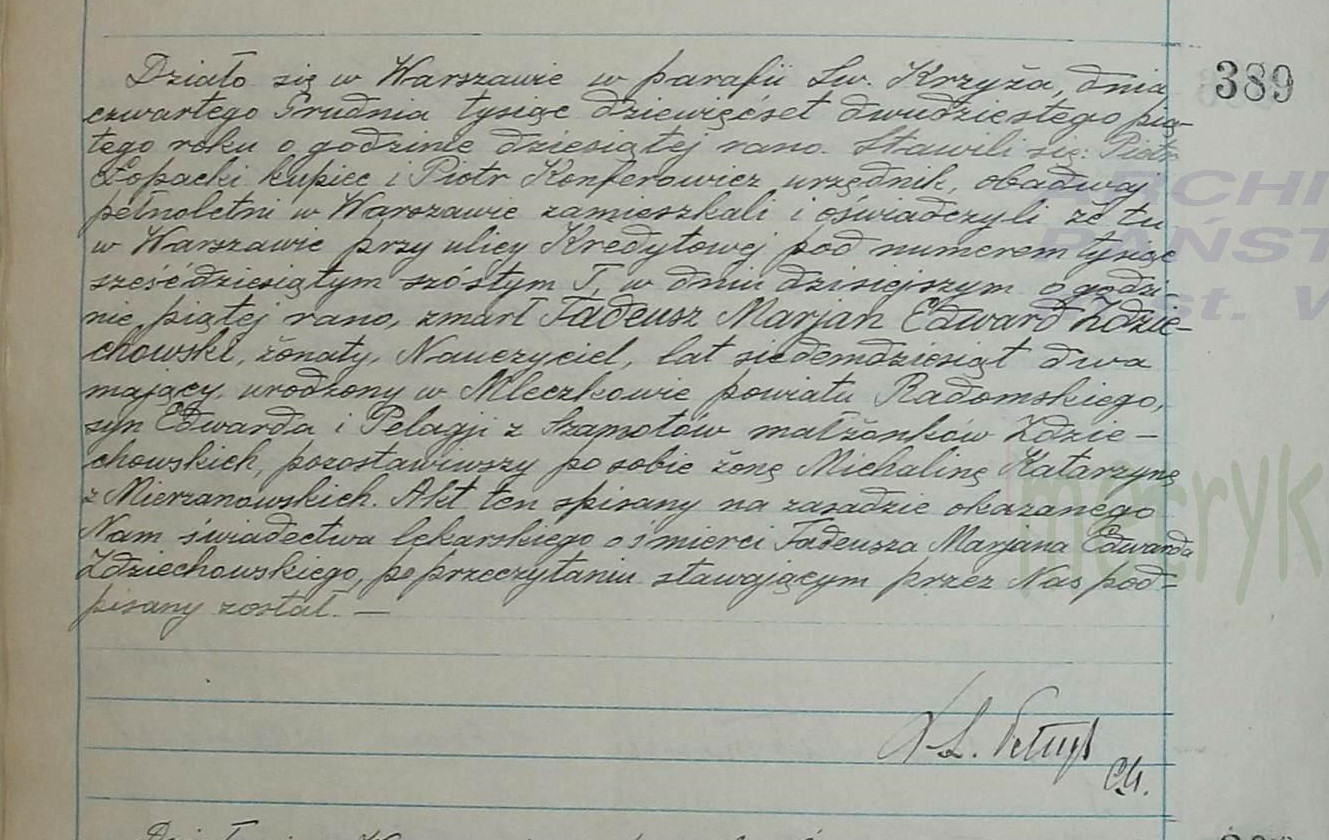 389
Działo się w Warszawie w parafii Św. Krzyża, dnia
czwartego Grudnia tysiąc dziewięćset dwudziestego pią-
tego roku o godzinie dziesiątej rano. Stawili się: Piotr
Łopacki kupiec i Piotr Konferowicz urzędnik, obadwaj
pełnoletni w Warszawie zamieszkali i oświadczyli że tu
w Warszawie przy ulicy Kredytowej pod numerem tysiąc
sześćdziesiątym szóstym T, w dniu dzisiejszym o godzi-
nie piątej rano, zmarł Tadeusz Marjan Edward Zdzie-
chowski, żonaty, Nauczyciel, lat siedemdziesiąt dwa
mający, urodzony w Mleczkowie powiatu Radomskiego,
syn Edwarda i Pelagji z Szamotów małżonków Zdzie-
chowskich, pozostawiwszy po sobie żonę Michalinę Katarzynę
z Mierzanowskich. Akt ten spisany na zasadzie okazanego
Nam świadectwa lekarskiego o śmierci Tadeusza Marjana Edwarda
Zdziechowskiego, po przeczytaniu stawającym przez Nas pod-
pisany został. —
ARCHI
PAŃST
st. W
metryk